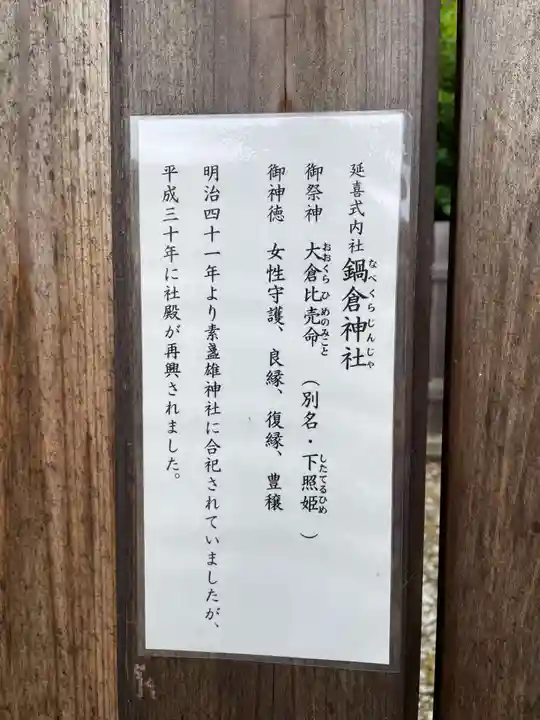 延喜式内社 鍋倉神社
なべくらじんじゃ
御祭神 大倉比売命 (別名・下照姫)
おおくらひめのみこと
したてるひめ
御神徳 女性守護、良縁、復縁、豊穣
明治四十一年より素盞雄神社に合祀されていましたが、
平成三十年に社殿が再興されました。